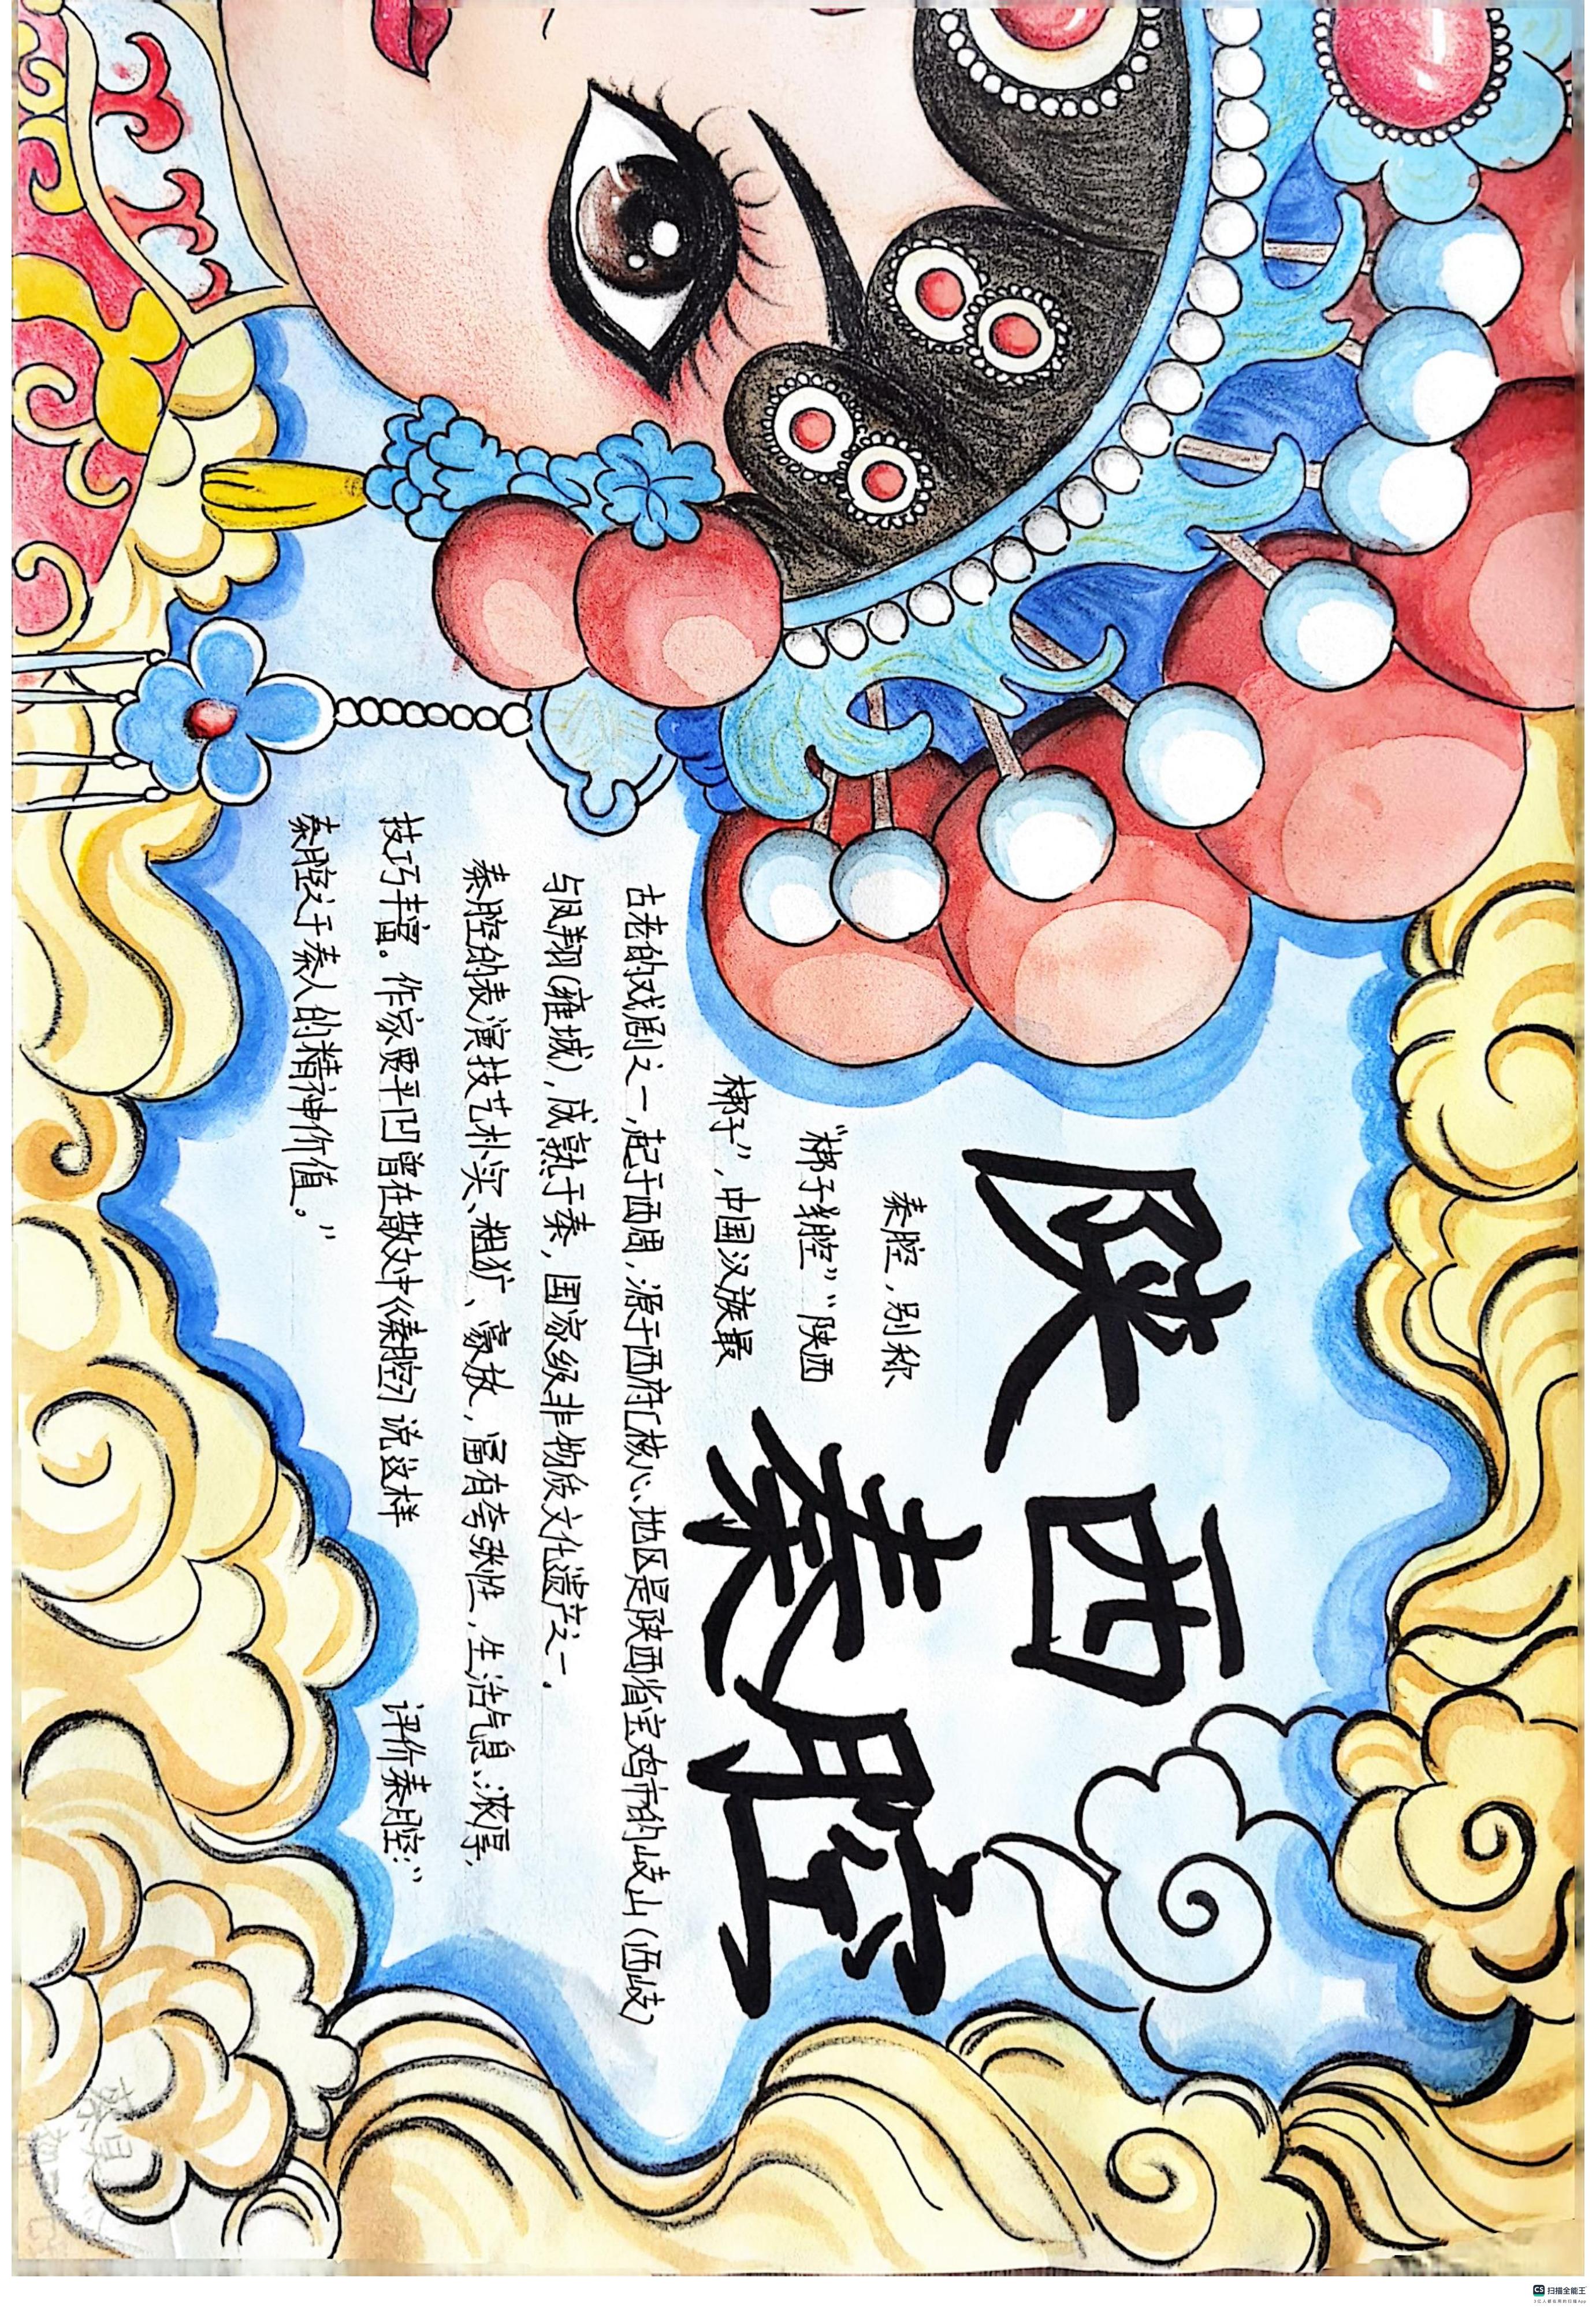 陕西
秦腔
秦腔，别称
“梆子腔”“陕西
梆子”，中国汉族最
古老的戏剧之一，起于西周，源于西府[核心地区是陕西省宝鸡市的岐山（西岐）
与凤翔（雍城），成熟于秦，国家级非物质文化遗产之一．
秦腔的表演技艺朴实、粗犷、豪放，富有夸张性，生活气息浓厚，
技巧丰富。作家贾平凹曾在散文中《秦腔》说这样 评价秦腔：“
秦腔之于秦人的精神价值。”
CS 扫描全能王
3亿人都在用的扫描App